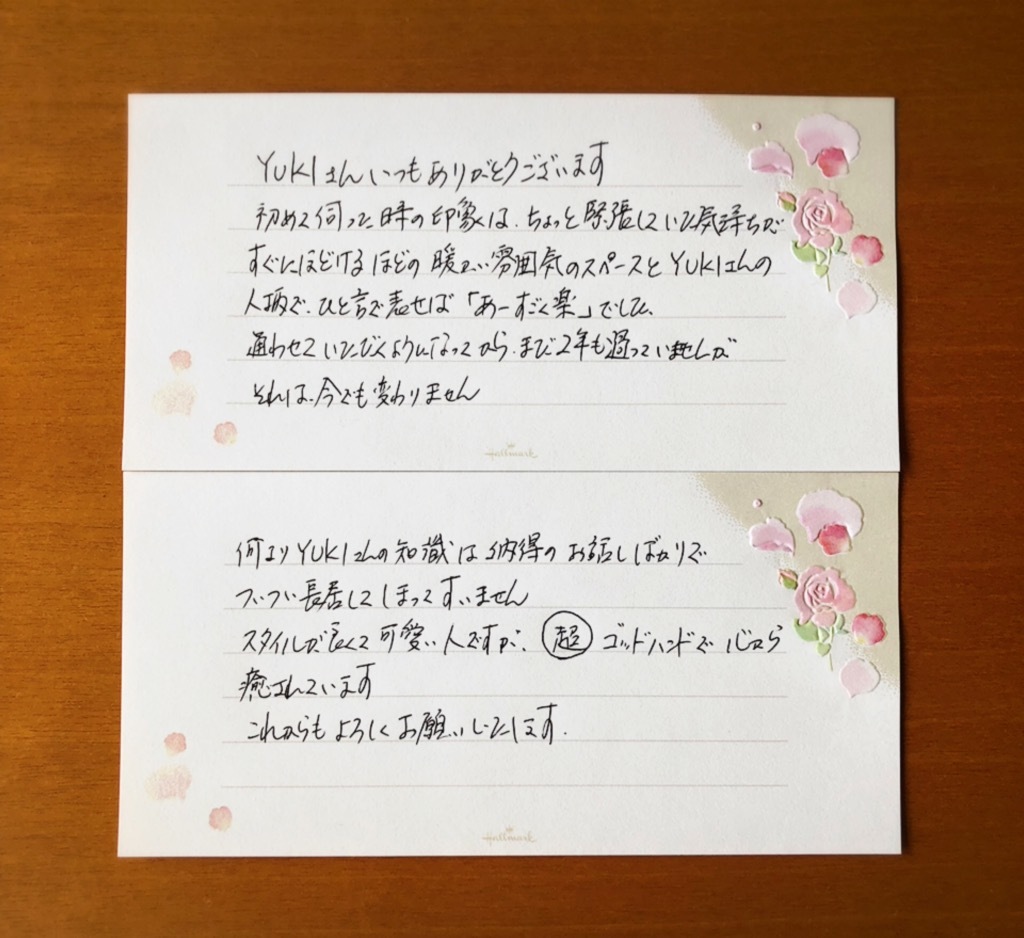 YUKIさんいつもありがとうございます
初めて伺った時の印象は、ちょっと緊張していた気持ちが
すぐにほどけるほどの暖かい雰囲気のスペースとYUKIさんの
人柄で、ひと言で表せば「あーすごく楽」でした、
通わせていただくようになってから、まだ2年も過っていませんが
それは、今でも変わりません
Hallmark
何よりYUKIさんの知識は納得のお話しばかりで
ついつい長居してしまってすいません
スタイルが良くて可愛い人ですが、超ゴッドハンドで心から
癒されています
これからもよろしくお願いいたします.
Hallmark